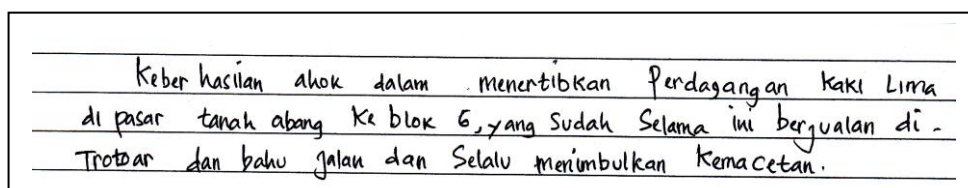 Keber hasilan ahok dalam menertibkan Perdagangan Kaki Lima
di pasar tanah abang Ke blok G, yang Sudah Selama ini berjualan di-
Trotoar dan bahu jalan dan Selalu menimbulkan Kemacetan.